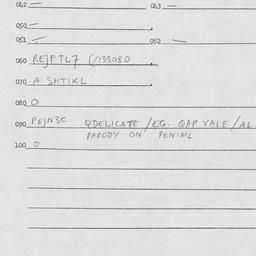 042 — 043 —
050 —
051 — 052 —
060 REJPTL7 (/13308D
070 A SHTIKL
080 O
090 PEJN3C QDELICATE /EG. QAP XALE /AL.
PARODY ON PENIML
100 O